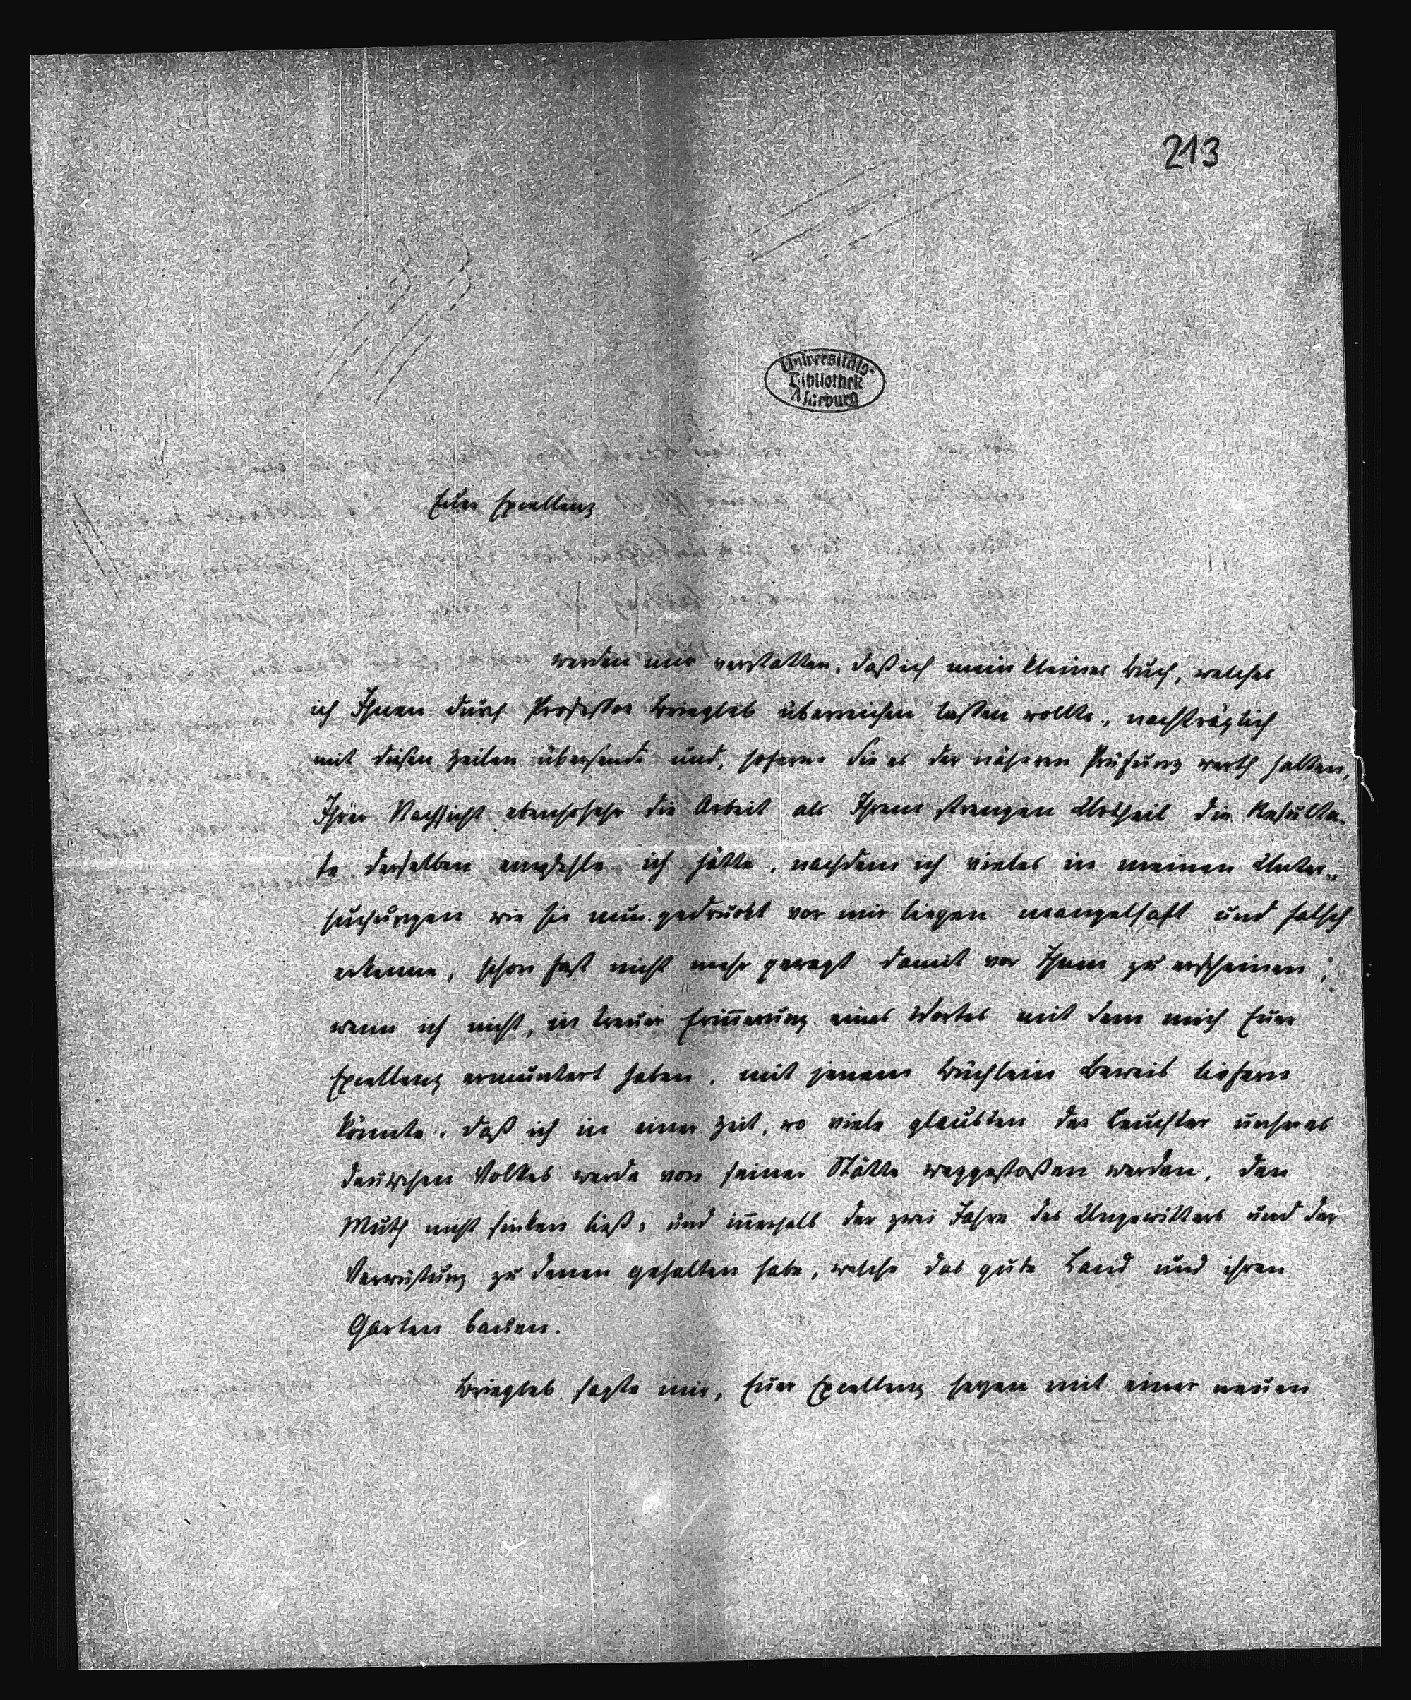 213
Universitäts-
Bibliothek
Marburg
Euer Excellenz
werden mir verstatten, daß ich mein kleines Buch, welches
ich Ihnen durch Professor Briegleb überreichen lassen wollte, nachträglich
mit diesen Zeilen übersende und, soferne Sie es der näheren Prüfung werth halten,
Ihrer Nachsicht ebensosehr die Arbeit als Ihrem strengen Urtheil die Resulta-
te derselben empfehle ich hätte, nachdem ich vieles in meinen Unter-
suchungen wie sie nun gedruckt vor mir liegen mangelhaft und falsch
erkenne, schon fast nicht mehr gewagt damit vor Ihnen zu erscheinen;
wenn ich nicht, in treuer Erinnerung eines Wortes mit dem mich Euer
Excellenz ermuntert haben, mit jenem Büchlein Beweis liefern
könnte, daß ich in einer Zeit, wo viele glaubten der Leuchter unseres
deutschen Volkes werde von seiner Stätte weggestoßen werden, den
Muth nicht sinken ließ, und innerhalb der zwei Jahre des Ungewitters und der
Verwüstung zu denen gehalten habe, welche das gute Land und ihren
Garten bauen.
Briegleb sagte mir, Euer Excellenz seyen mit einer neuen